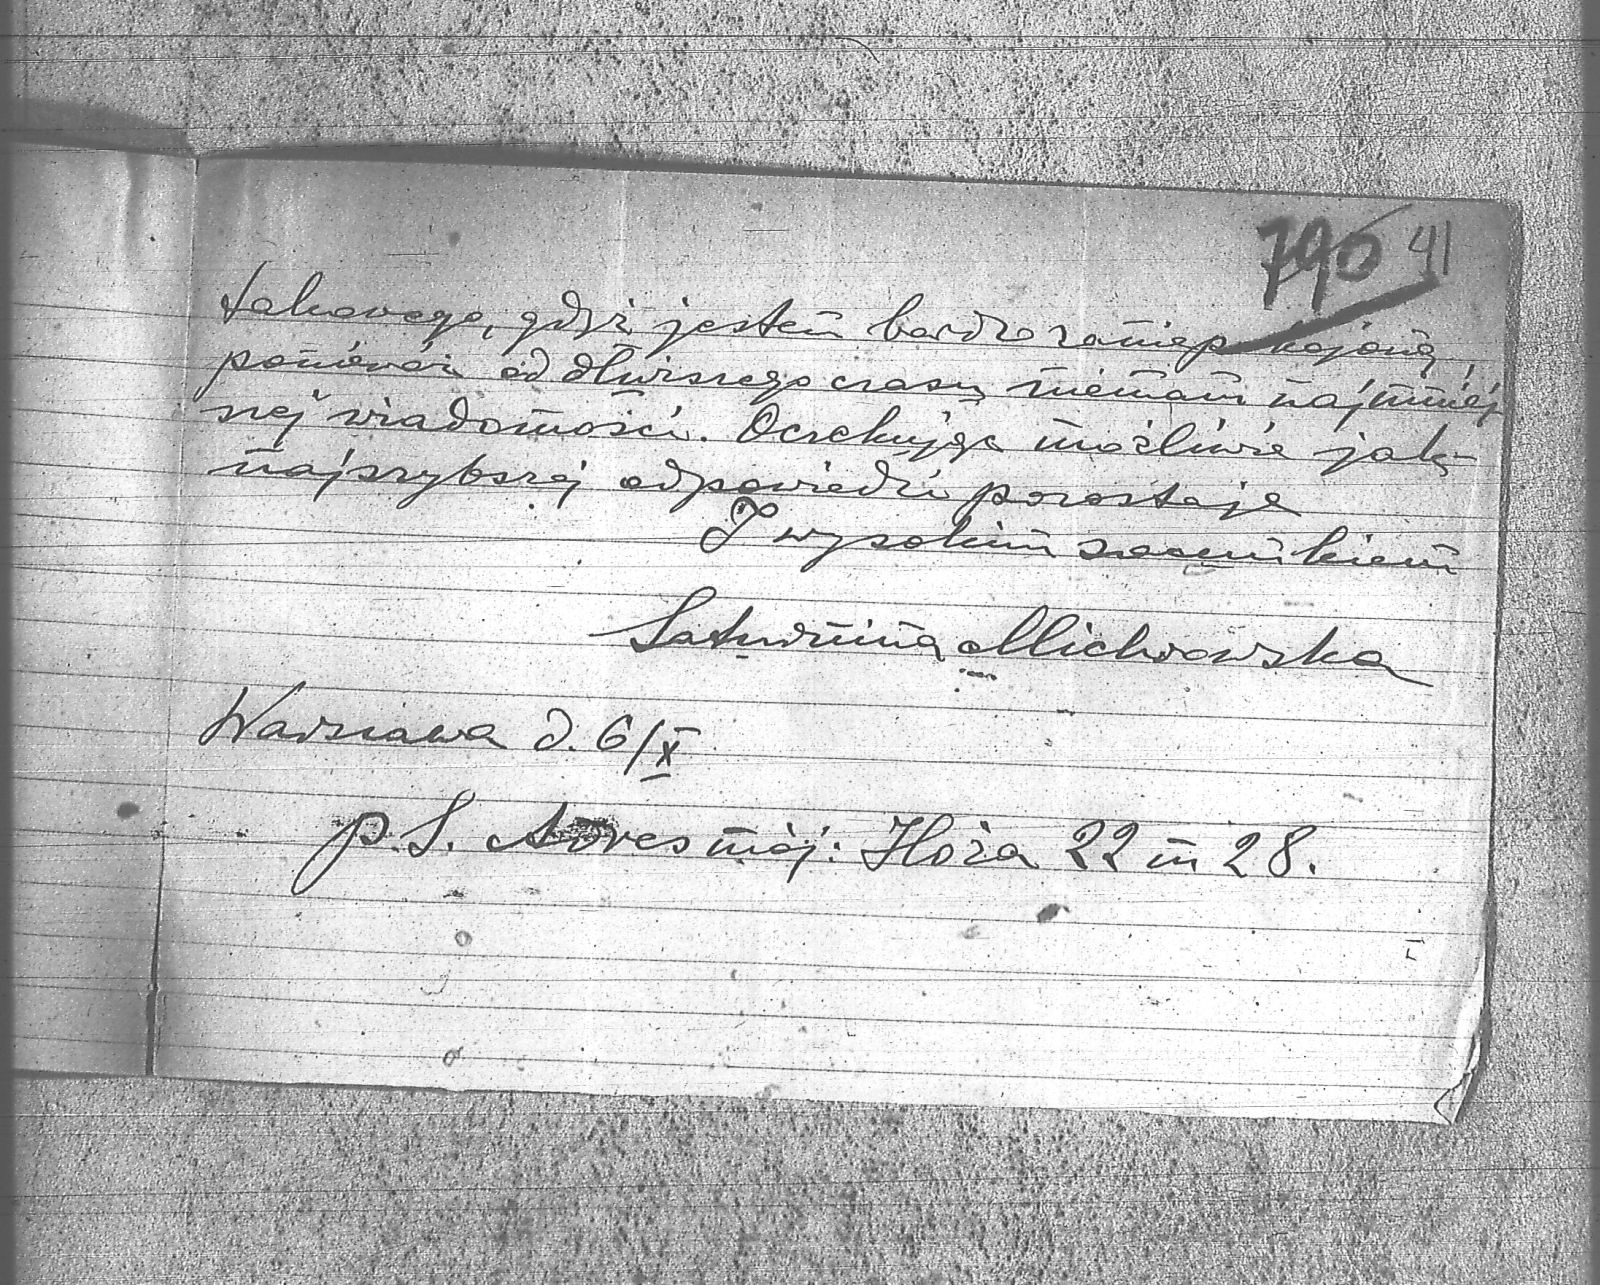 790 41
takowego, gdyż jestem bardzo zaniepokojoną,
ponieważ od dłuższego czasu niemam najmniej
szej wiadomości. Oczekując możliwie jak-
najszybszej odpowiedzi pozostaję
Z wysokim szacunkiem
Saturnina Michrowska
Warszawa d. 6/X
P.S. Adres mój: Hoża 22 m 28.